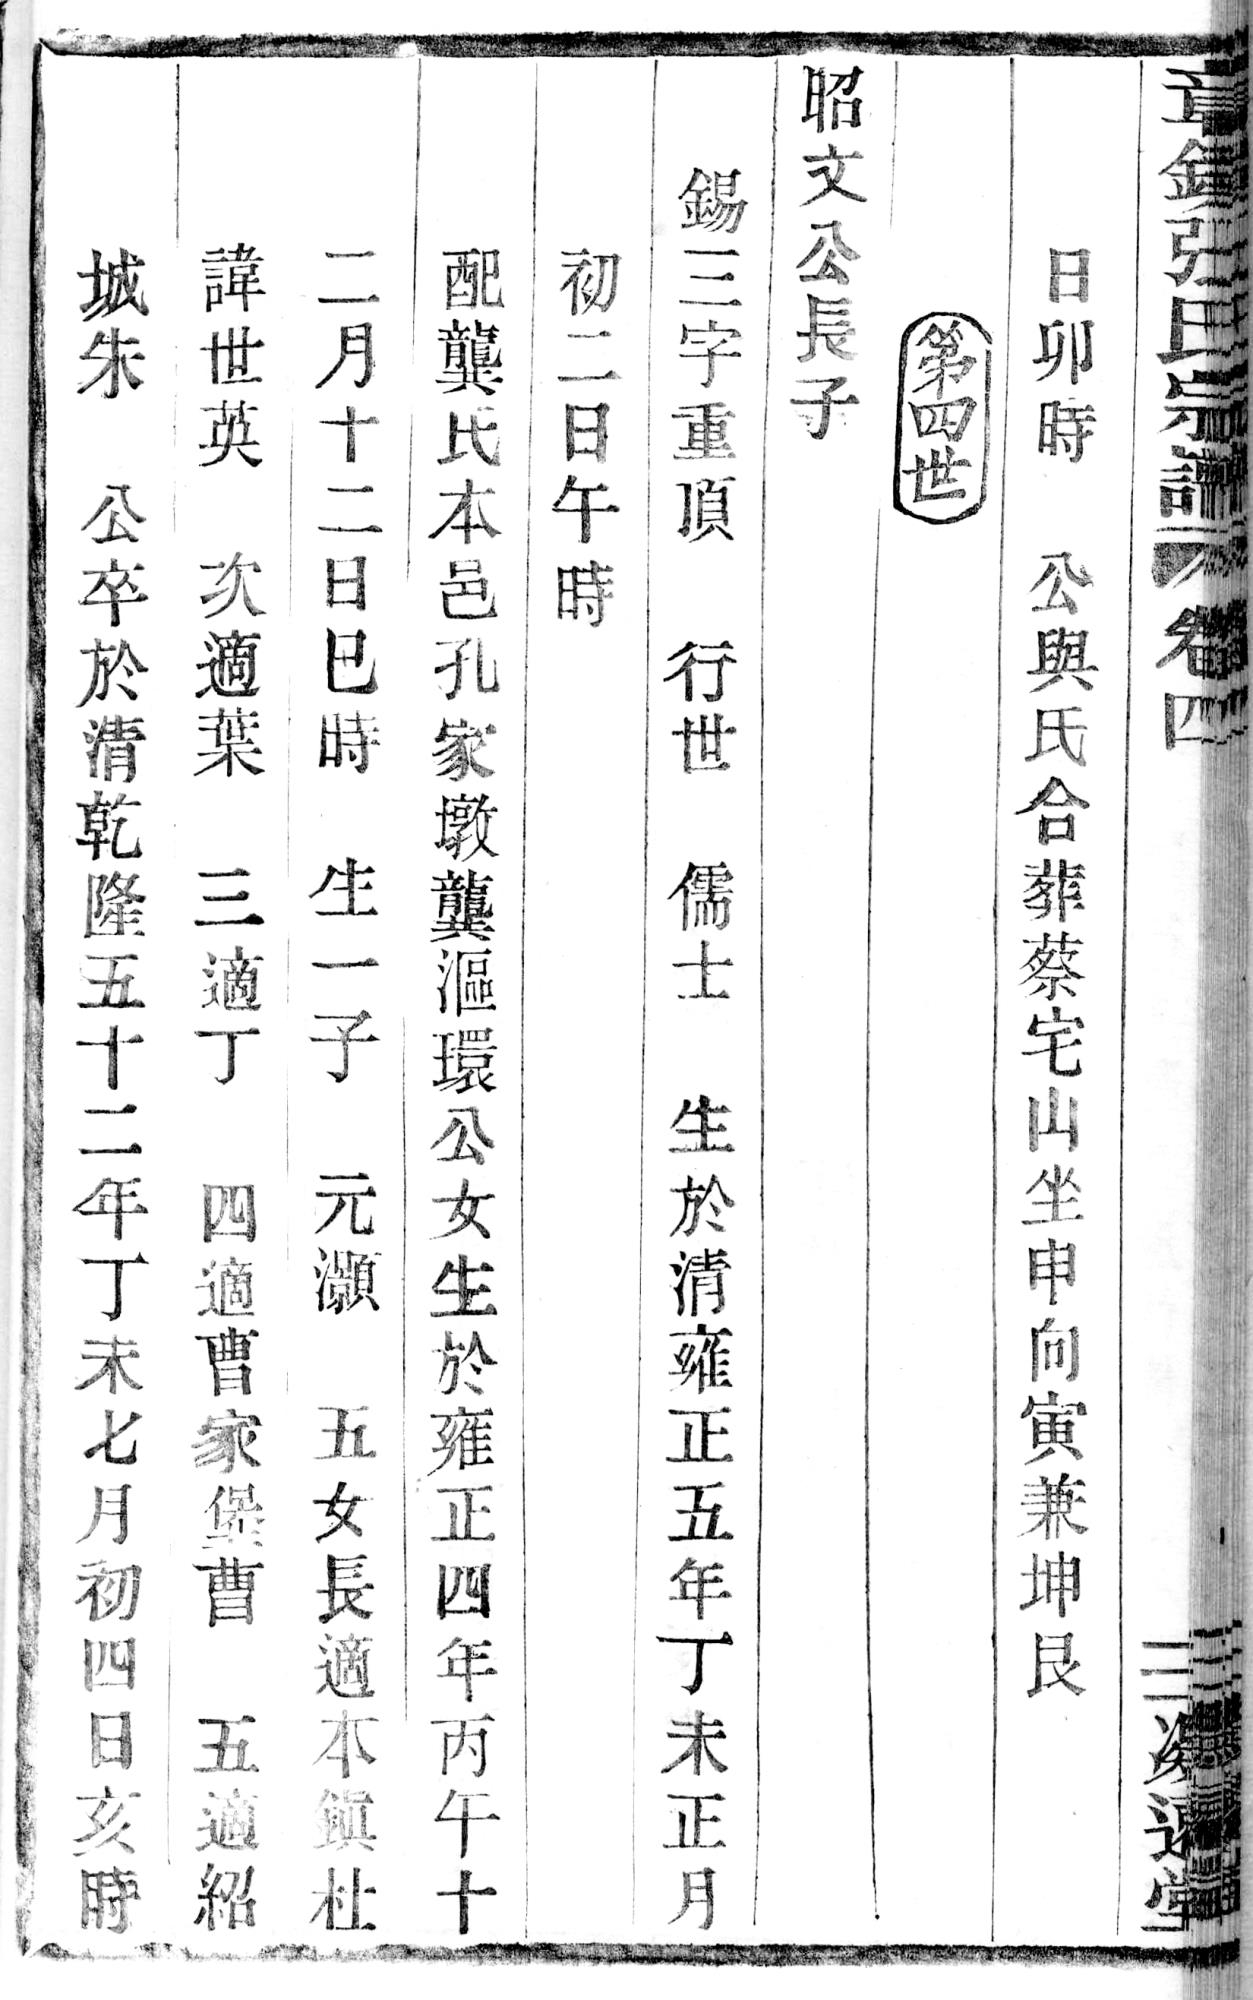 章鎮張氏宗譜 卷四 二
日卯時 公與氏合葬蔡宅山坐申向寅兼坤艮
第四世
昭文公長子
錫三字重頂 行世 儒士 生於清雍正五年丁未正月
初二日午時
配龔氏本邑孔家墩龔漚環公女生於雍正四年丙午十
二月十二日巳時 生一子 元灝 五女長適本鎮杜
諱世英 次適葉 三適丁 四適曹家堡曹 五適紹
城朱 公卒於清乾隆五十二年丁未七月初四日亥時